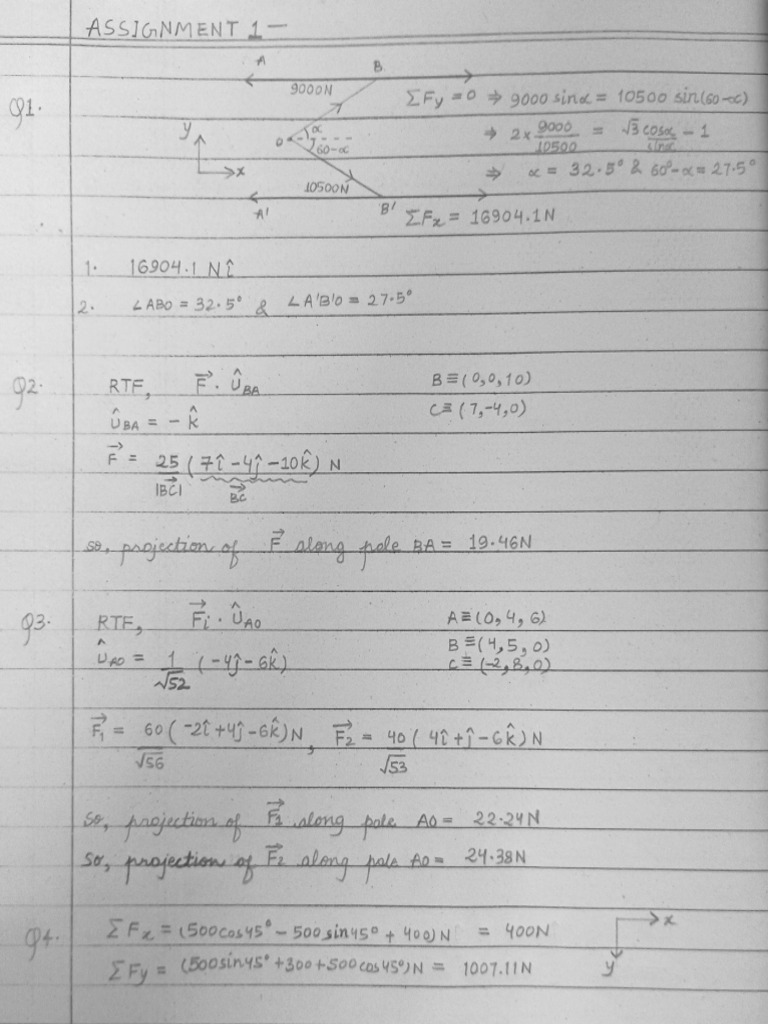 ASSIGNMENT 1 —
A B
9000N
Q1. ΣFy = 0 ⇒ 9000 sinα = 10500 sin(60-α)
y α
O 60-α
⇒ 2 × 9000/10500 = √3 cosα/sinα - 1
x
⇒ α = 32.5° & 60°-α = 27.5°
10500N
A' B' ΣFx = 16904.1N
1. 16904.1 N î
2. ∠ABO = 32.5° & ∠A'B'O = 27.5°
Q2. RTF, F⃗ · Û_BA B ≡ (0,0,10)
Û_BA = - k̂ C ≡ (7,-4,0)
F⃗ = 25/|BC⃗| (7î -4ĵ -10k̂) N
BC⃗
so, projection of F⃗ along pole BA = 19.46N
Q3. RTF, F⃗i · Û_AO A ≡ (0, 4, 6)
Û_AO = 1/√52 (-4ĵ -6k̂) B ≡ (4, 5, 0)
C ≡ (-2, 8, 0)
F⃗1 = 60/√56 (-2î +4ĵ -6k̂) N, F⃗2 = 40/√53 (4î +ĵ -6k̂) N
So, projection of F⃗1 along pole AO = 22.24N
So, projection of F⃗2 along pole AO = 24.38N
Q4. ΣFx = (500cos45° - 500 sin45° + 400)N = 400N x
ΣFy = (500sin45° +300+500cos45°)N = 1007.11N y